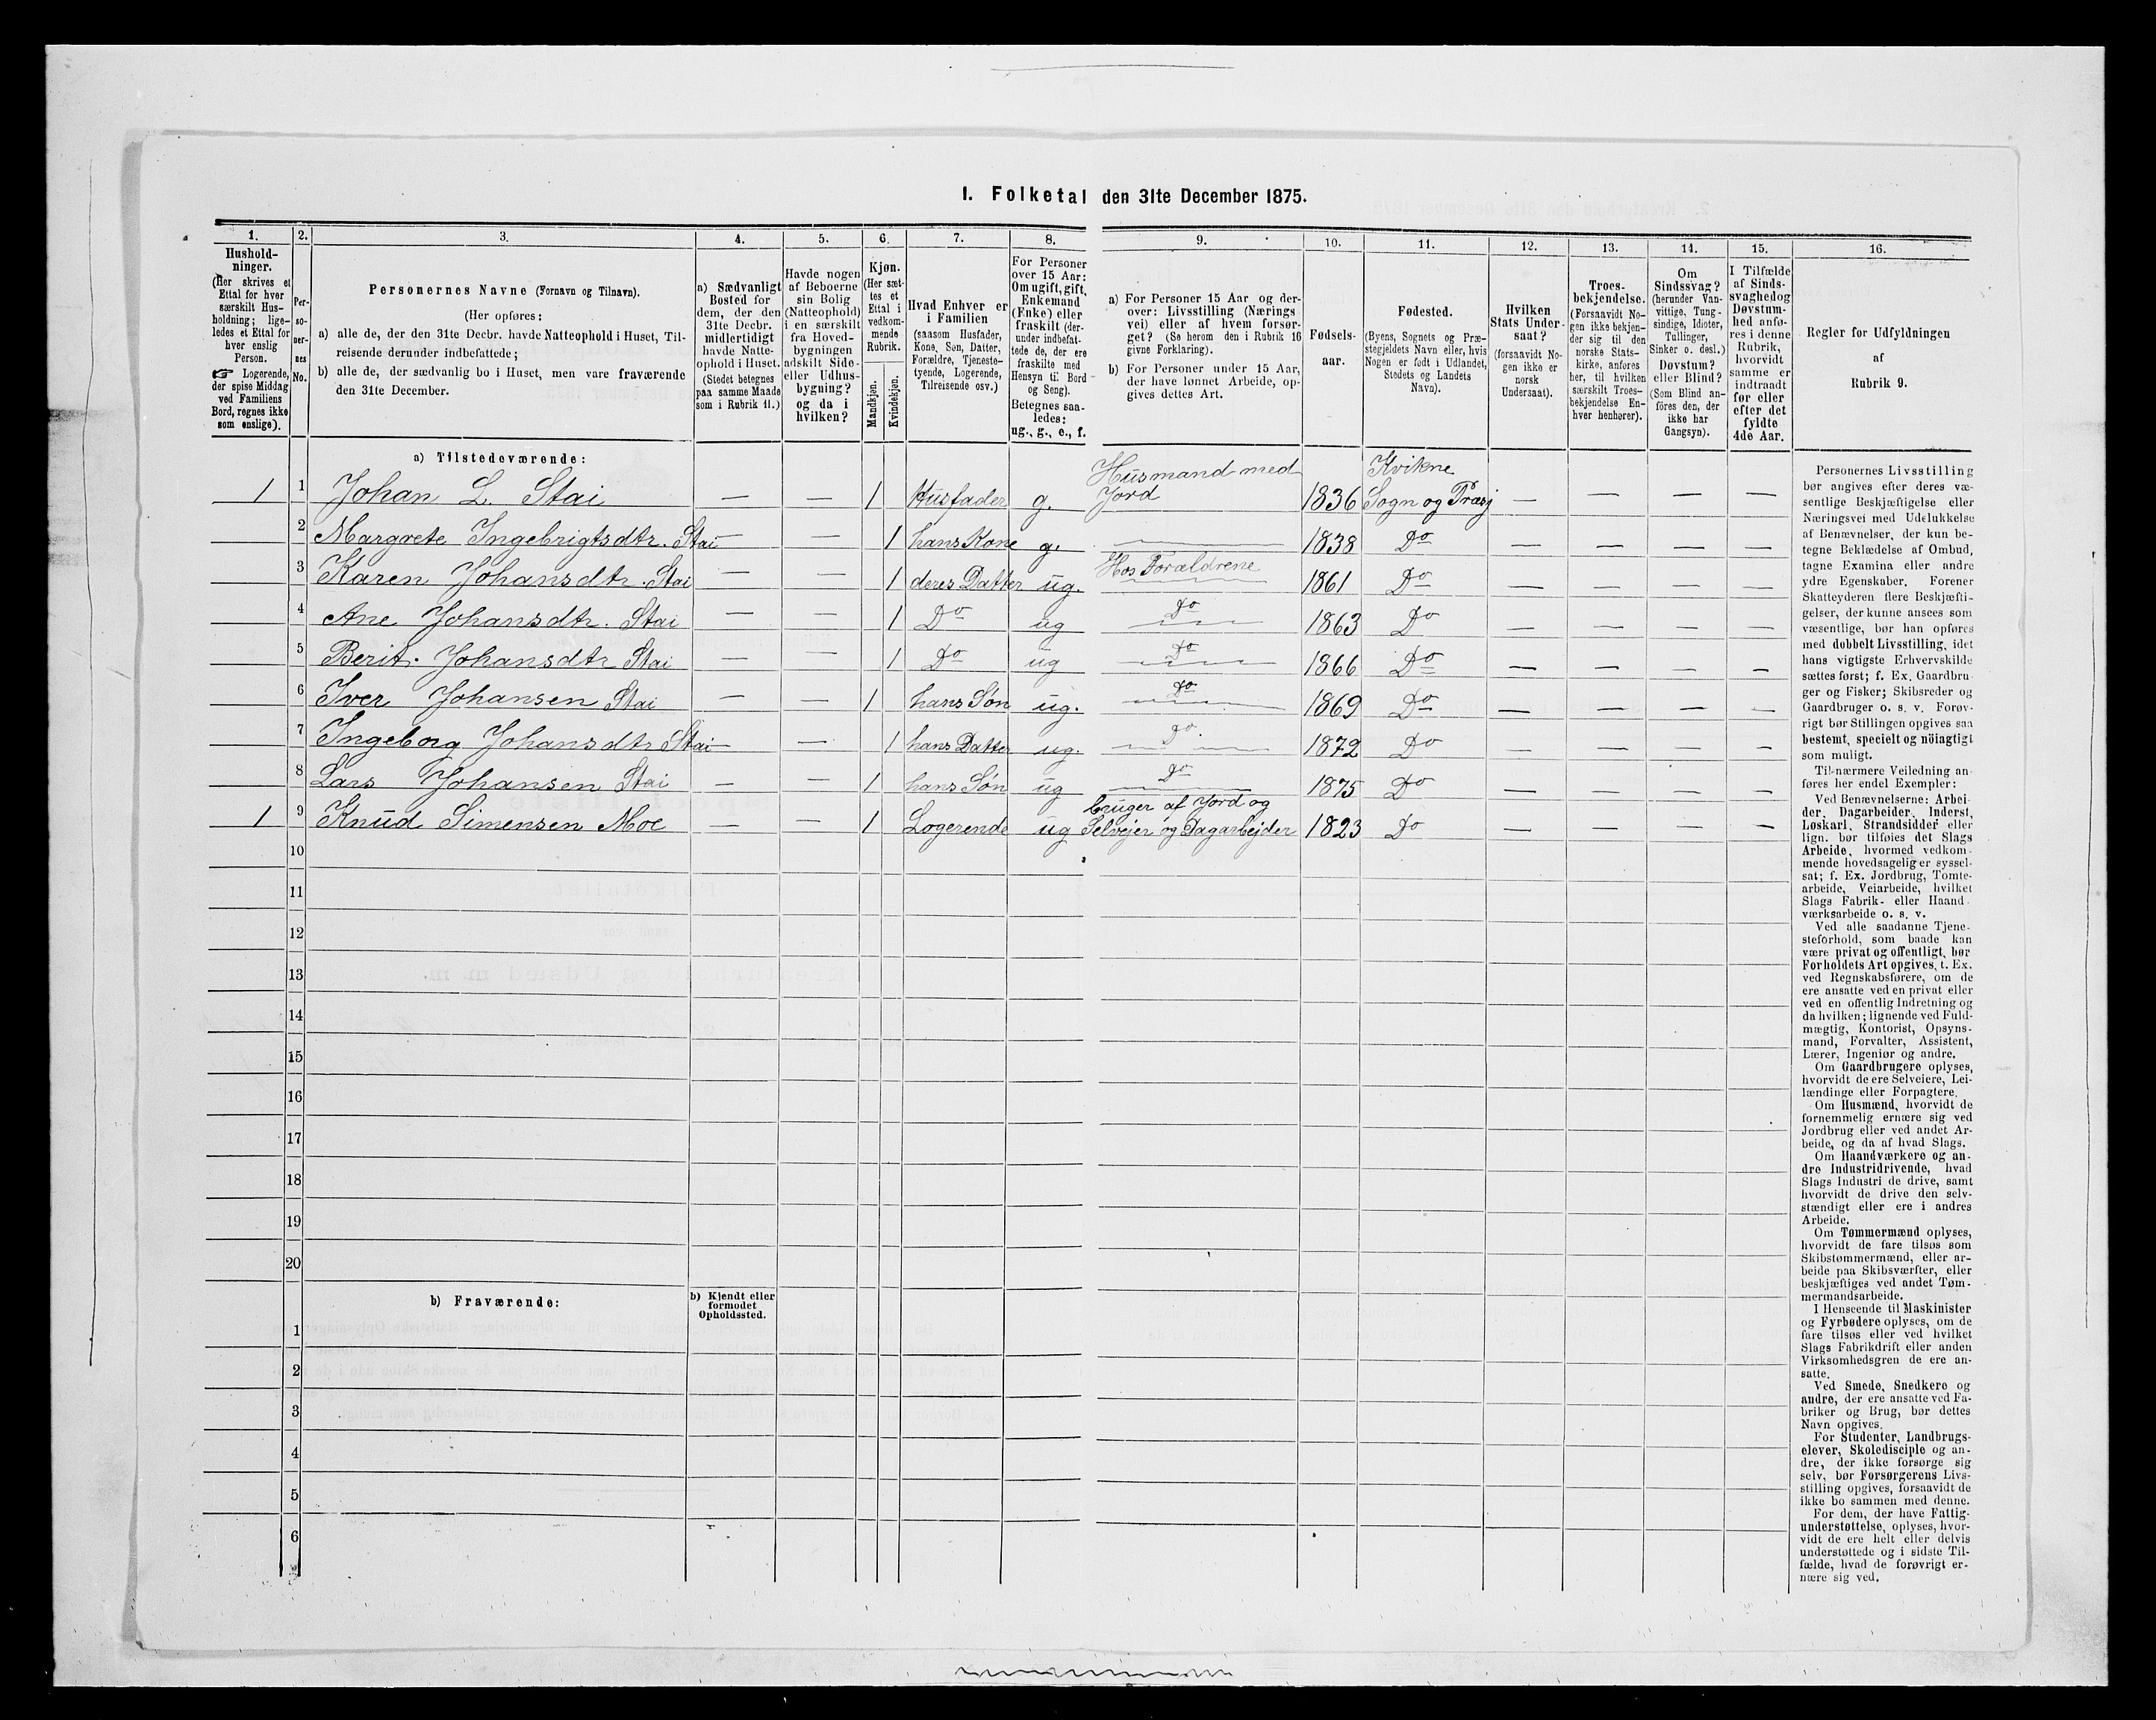 1. Folketal den 31te December 1875.
1. 2. 3. 4. 5. 6. 7. 8. 9. 10. 11. 12. 13. 14. 15. 16.
Hushold-
ninger.
(Her skrives et
Ettal for hver
særskilt Hus-
holdning; lige-
ledes et Ettal for
hver enslig
Person.
☞ Logerende,
der spise Middag
ved Familiens
Bord, regnes ikke
som enslige).
Per-
so-
ner-
nes
No.
Personernes Navne (Fornavn og Tilnavn).
(Her opføres:
a) alle de, der den 31te Decbr. havde Natteophold i Huset, Til-
reisende derunder indbefattede;
b) alle de, der sædvanlig bo i Huset, men vare fraværende
den 31te December.
a) Sædvanligt
Bosted for
dem, der den
31te Decbr.
midlertidigt
havde Natte-
ophold i Huset.
(Stedet betegnes
paa samme Maade
som i Rubrik 11.)
Havde nogen
af Beboerne
sin Bolig
(Natteophold)
i en særskilt
fra Hoved-
bygningen
adskilt Side-
eller Udhus-
bygning?
og da i
hvilken?
Kjøn.
(Her sæt-
tes et
Ettal i
vedkom-
mende
Rubrik.
Mandkjøn.
Kvindekjøn.
Hvad Enhver er
i Familien
(saasom Husfader,
Kone, Søn, Datter,
Forældre, Tjeneste-
tyende, Logerende,
Tilreisende osv.)
For Personer
over 15 Aar:
Om ugift, gift,
Enkemand
(Enke) eller
fraskilt (der-
under indbefat-
tede de, der ere
fraskilte med
Hensyn til Bord
og Seng).
Betegnes saa-
ledes:
ug., g., e., f.
a) For Personer 15 Aar og der-
over: Livsstilling (Nærings
vei) eller af hvem forsør-
get? (Se herom den i Rubrik 16
givne Forklaring).
b) For Personer under 15 Aar,
der have lønnet Arbeide, op-
gives dettes Art.
Fødsels-
aar.
Fødested.
(Byens, Sognets og Præ-
stegjeldets Navn eller, hvis
Nogen er født i Udlandet,
Stedets og Landets
Navn).
Hvilken
Stats Under-
saat?
(forsaavidt No-
gen ikke er
norsk
Undersaat).
Troes-
bekjendelse.
(Forsaavidt No-
gen ikke bekjen-
der sig til den
norske Stats-
kirke, anføres
her, til hvilken
særskilt Troes-
bekjendelse En-
hver henhører).
Om
Sindssvag?
(herunder Van-
vittige, Tung-
sindige, Idioter,
Tullinger,
Sinker o. desl.)
Døvstum?
eller Blind?
(Som Blind an-
föres den, der
ikke har
Gangsyn).
I Tilfælde
af Sinds-
svaghed og
Døvstum-
hed anfø-
res i denne
Rubrik,
hvorvidt
samme er
indtraadt
før eller
efter det
fyldte
4de Aar.
Regler for Udfyldningen
af
Rubrik 9.
a) Tilstedeværende:
1 1 Johan L. Stai — — 1 Husfader g. Husmand med Jord 1836 Kvikne Sogn og Præsj — — — —
2 Margrete Ingebrigtsdtr. Stai — — 1 hans Kone g. — 1838 Do — — — —
3 Karen Johansdtr. Stai — — 1 deres Datter ug. Hos Forældrene 1861 Do — — — —
4 Ane Johansdtr. Stai — — 1 Do ug Do 1863 Do — — — —
5 Berit. Johansdtr Stai — — 1 Do ug Do 1866 Do — — — —
6 Iver Johansen Stai — — 1 hans Søn ug. Do 1869 Do — — — —
7 Ingeborg Johansdtr Stai — — 1 hans Datter ug. Do. 1872 Do — — — —
8 Lars Johansen Stai — — 1 hans Søn ug Do 1875 Do — — — —
1 9 Knud Simensen Moe — — 1 Logerende ug bruger af Jord og Selvejer og Dagarbejder 1823 Do — — — —
10
11
12
13
14
15
16
17
18
19
20
b) Fraværende:
b) Kjendt eller
formodet
Opholdssted.
1
2
3
4
5
6
Personernes Livsstilling
bør angives efter deres væ-
sentlige Beskjæftigelse eller
Næringsvei med Udelukkelse
af Benævnelser, der kun be-
tegne Beklædelse af Ombud,
tagne Examina eller andre
ydre Egenskaber. Forener
Skatteyderen flere Beskjæfti-
gelser, der kunne ansees som
væsentlige, bør han opføres
med dobbelt Livsstilling, idet
hans vigtigste Erhvervskilde
sættes først; f. Ex. Gaardbru-
ger og Fisker; Skibsreder og
Gaardbruger o. s. v. Forøv-
rigt bør Stillingen opgives saa
bestemt, specielt og nöiagtigt
som muligt.
Til nærmere Veiledning an-
føres her endel Exempler:
Ved Benævnelserne: Arbei-
der, Dagarbeider, Inderst,
Løskarl, Strandsidder eller
lign. bør tilføies det Slags
Arbeide, hvormed vedkom-
mende hovedsagelig er syssel-
sat; f. Ex. Jordbrug, Tomte-
arbeide, Veiarbeide, hvilket
Slags Fabrik- eller Haand-
værksarbeide o. s. v.
Ved alle saadanne Tjene-
steforhold, som baade kan
være privat og offentligt, bør
Forholdets Art opgives, t. Ex.
ved Regnskabsførere, om de
ere ansatte ved en privat eller
ved en offentlig Indretning og
da hvilken; lignende ved Fuld-
mægtig, Kontorist, Opsyns-
mand, Forvalter, Assistent,
Lærer, Ingeniør og andre.
Om Gaardbrugere oplyses,
hvorvidt de ere Selveiere, Lei-
lændinge eller Forpagtere.
Om Husmænd, hvorvidt de
fornemmelig ernære sig ved
Jordbrug eller ved andet Ar-
beide, og da af hvad Slags.
Om Haandværkere og an-
dre Industridrivende, hvad
Slags Industri de drive, samt
hvorvidt de drive den selv-
stændigt eller ere i andres
Arbeide.
Om Tømmermænd oplyses,
hvorvidt de fare tilsøs som
Skibstømmermænd, eller ar-
beide paa Skibsværfter, eller
beskjæftiges ved andet Tøm-
mermandsarbeide.
I Henseende til Maskinister
og Fyrbødere oplyses, om de
fare tilsøs eller ved hvilket
Slags Fabrikdrift eller anden
Virksomhedsgren de ere an-
satte.
Ved Smede, Snedkere og
andre, der ere ansatte ved Fa-
briker og Brug, bør dettes
Navn opgives.
For Studenter, Landbrugs-
elever, Skoledisciple og an-
dre, der ikke forsørge sig
selv, bør Forsørgerens Livs-
stilling opgives, forsaavidt de
ikke bo sammen med denne.
For dem, der have Fattig-
understøttelse, oplyses, hvor-
vidt de ere helt eller delvis
understøttede og i sidste Til-
fælde, hvad de forøvrigt er-
nære sig ved.